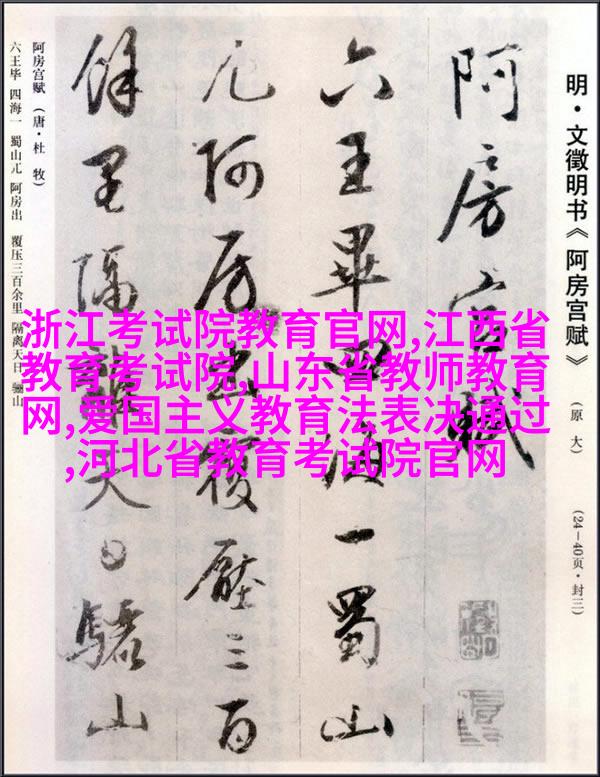 明·文徵明书《阿房宫赋》
(原大)
(24—40页·封三)
阿房宫賦
六王畢四海一蜀山
兀阿房出覆壓三百
餘里隔離天日驪山
阿房宫赋(唐·杜牧)
六王毕 四海一 蜀山兀 阿房出 覆压三百余里 隔离天日 骊山
浙江考试院教育官网,江西省
教育考试院,山东省教师教育
网,爱国主义教育法表决通过
,河北省教育考试院官网